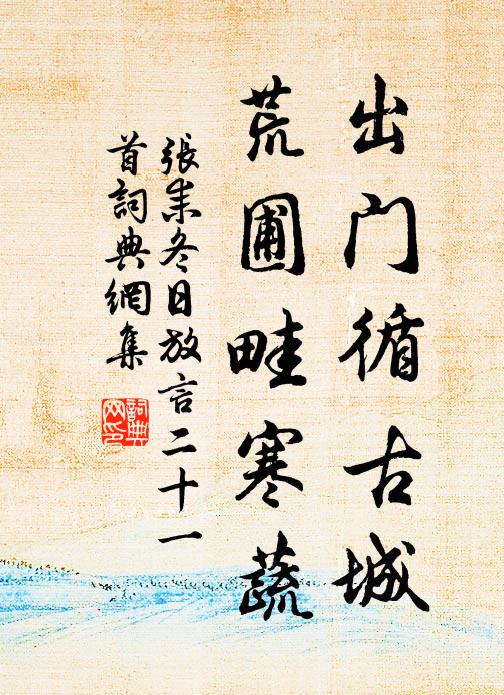 出门循古城
荒圃畦寒蔬
張耒冬日放言二十一
首詞典網集
詞典
网印